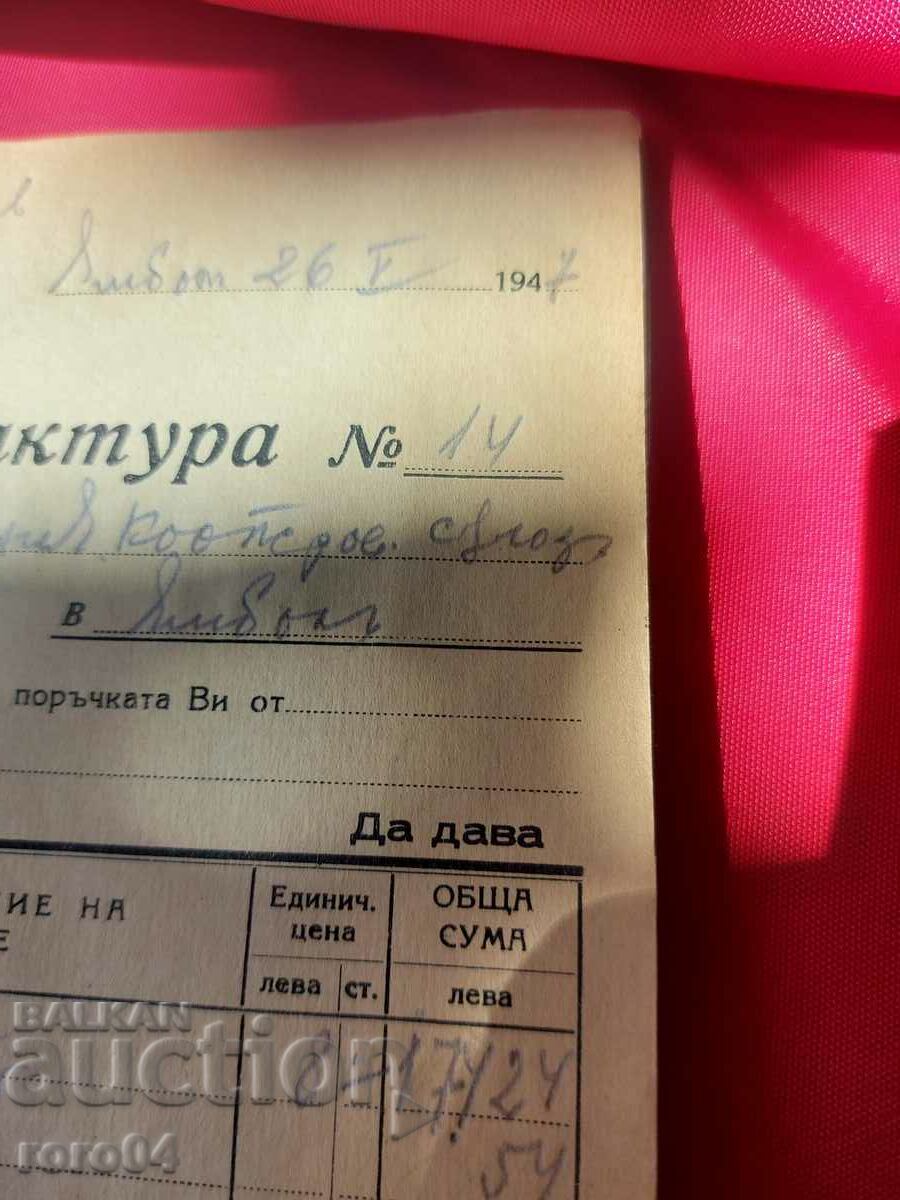 Ямбол 26 V 1947
актура № 14
кооперов. съюз
в Ямбол
поръчката Ви от
Да дава
ИЕ НА
Е
Единич. цена
ОБЩА СУМА
лева ст. лева
BALKAN
auction
54
roro04